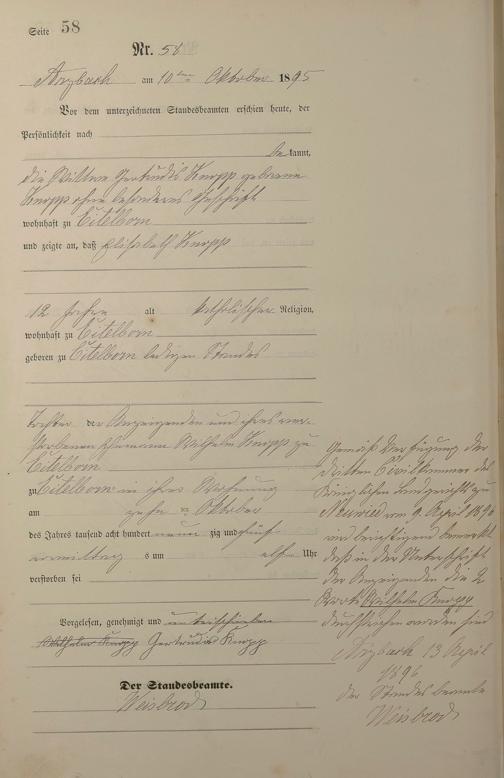 Seite 58
Nr. 58
Arzbach am 10ten Oktober 1895
Vor dem unterzeichneten Standesbeamten erschien heute, der
Persönlichkeit nach
bekannt,
die Wittwe Gertrudis Knopp geborene
Knopp ohne besonderes Geschäft
wohnhaft zu Eitelborn
und zeigte an, daß Elisabeth Knopp
12 Jahre alt katholischer Religion,
wohnhaft zu Eitelborn
geboren zu Eitelborn ledigen Standes
Tochter der Anzeigenden und ihres ver-
storbenen Ehemann Wilhelm Knopp zu
Eitelborn
zu Eitelborn in ihrer Wohnung
am zehn Oktober
des Jahres tausend acht hundert neunzig und fünf
vormittags um elf Uhr
verstorben sei
Vorgelesen, genehmigt und unterschrieben
Wilhelm Knopp Gertrudis Knopp
Der Standesbeamte.
Weisbrod
Gemäß Verfügung der
dritten Civilkammer des
Königlichen Landgerichts zu
Neuwied vom 9 April 1896
wird berichtigend bemerkt
daß in der Unterschrift
der Anzeigenden die 2
Worte Wilhelm Knopp
durchstrichen worden sind
Arzbach 13 April
1896
der Standesbeamte
Weisbrod